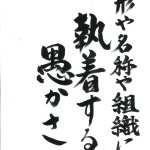 形や名称や組織に
執着する
愚かさ